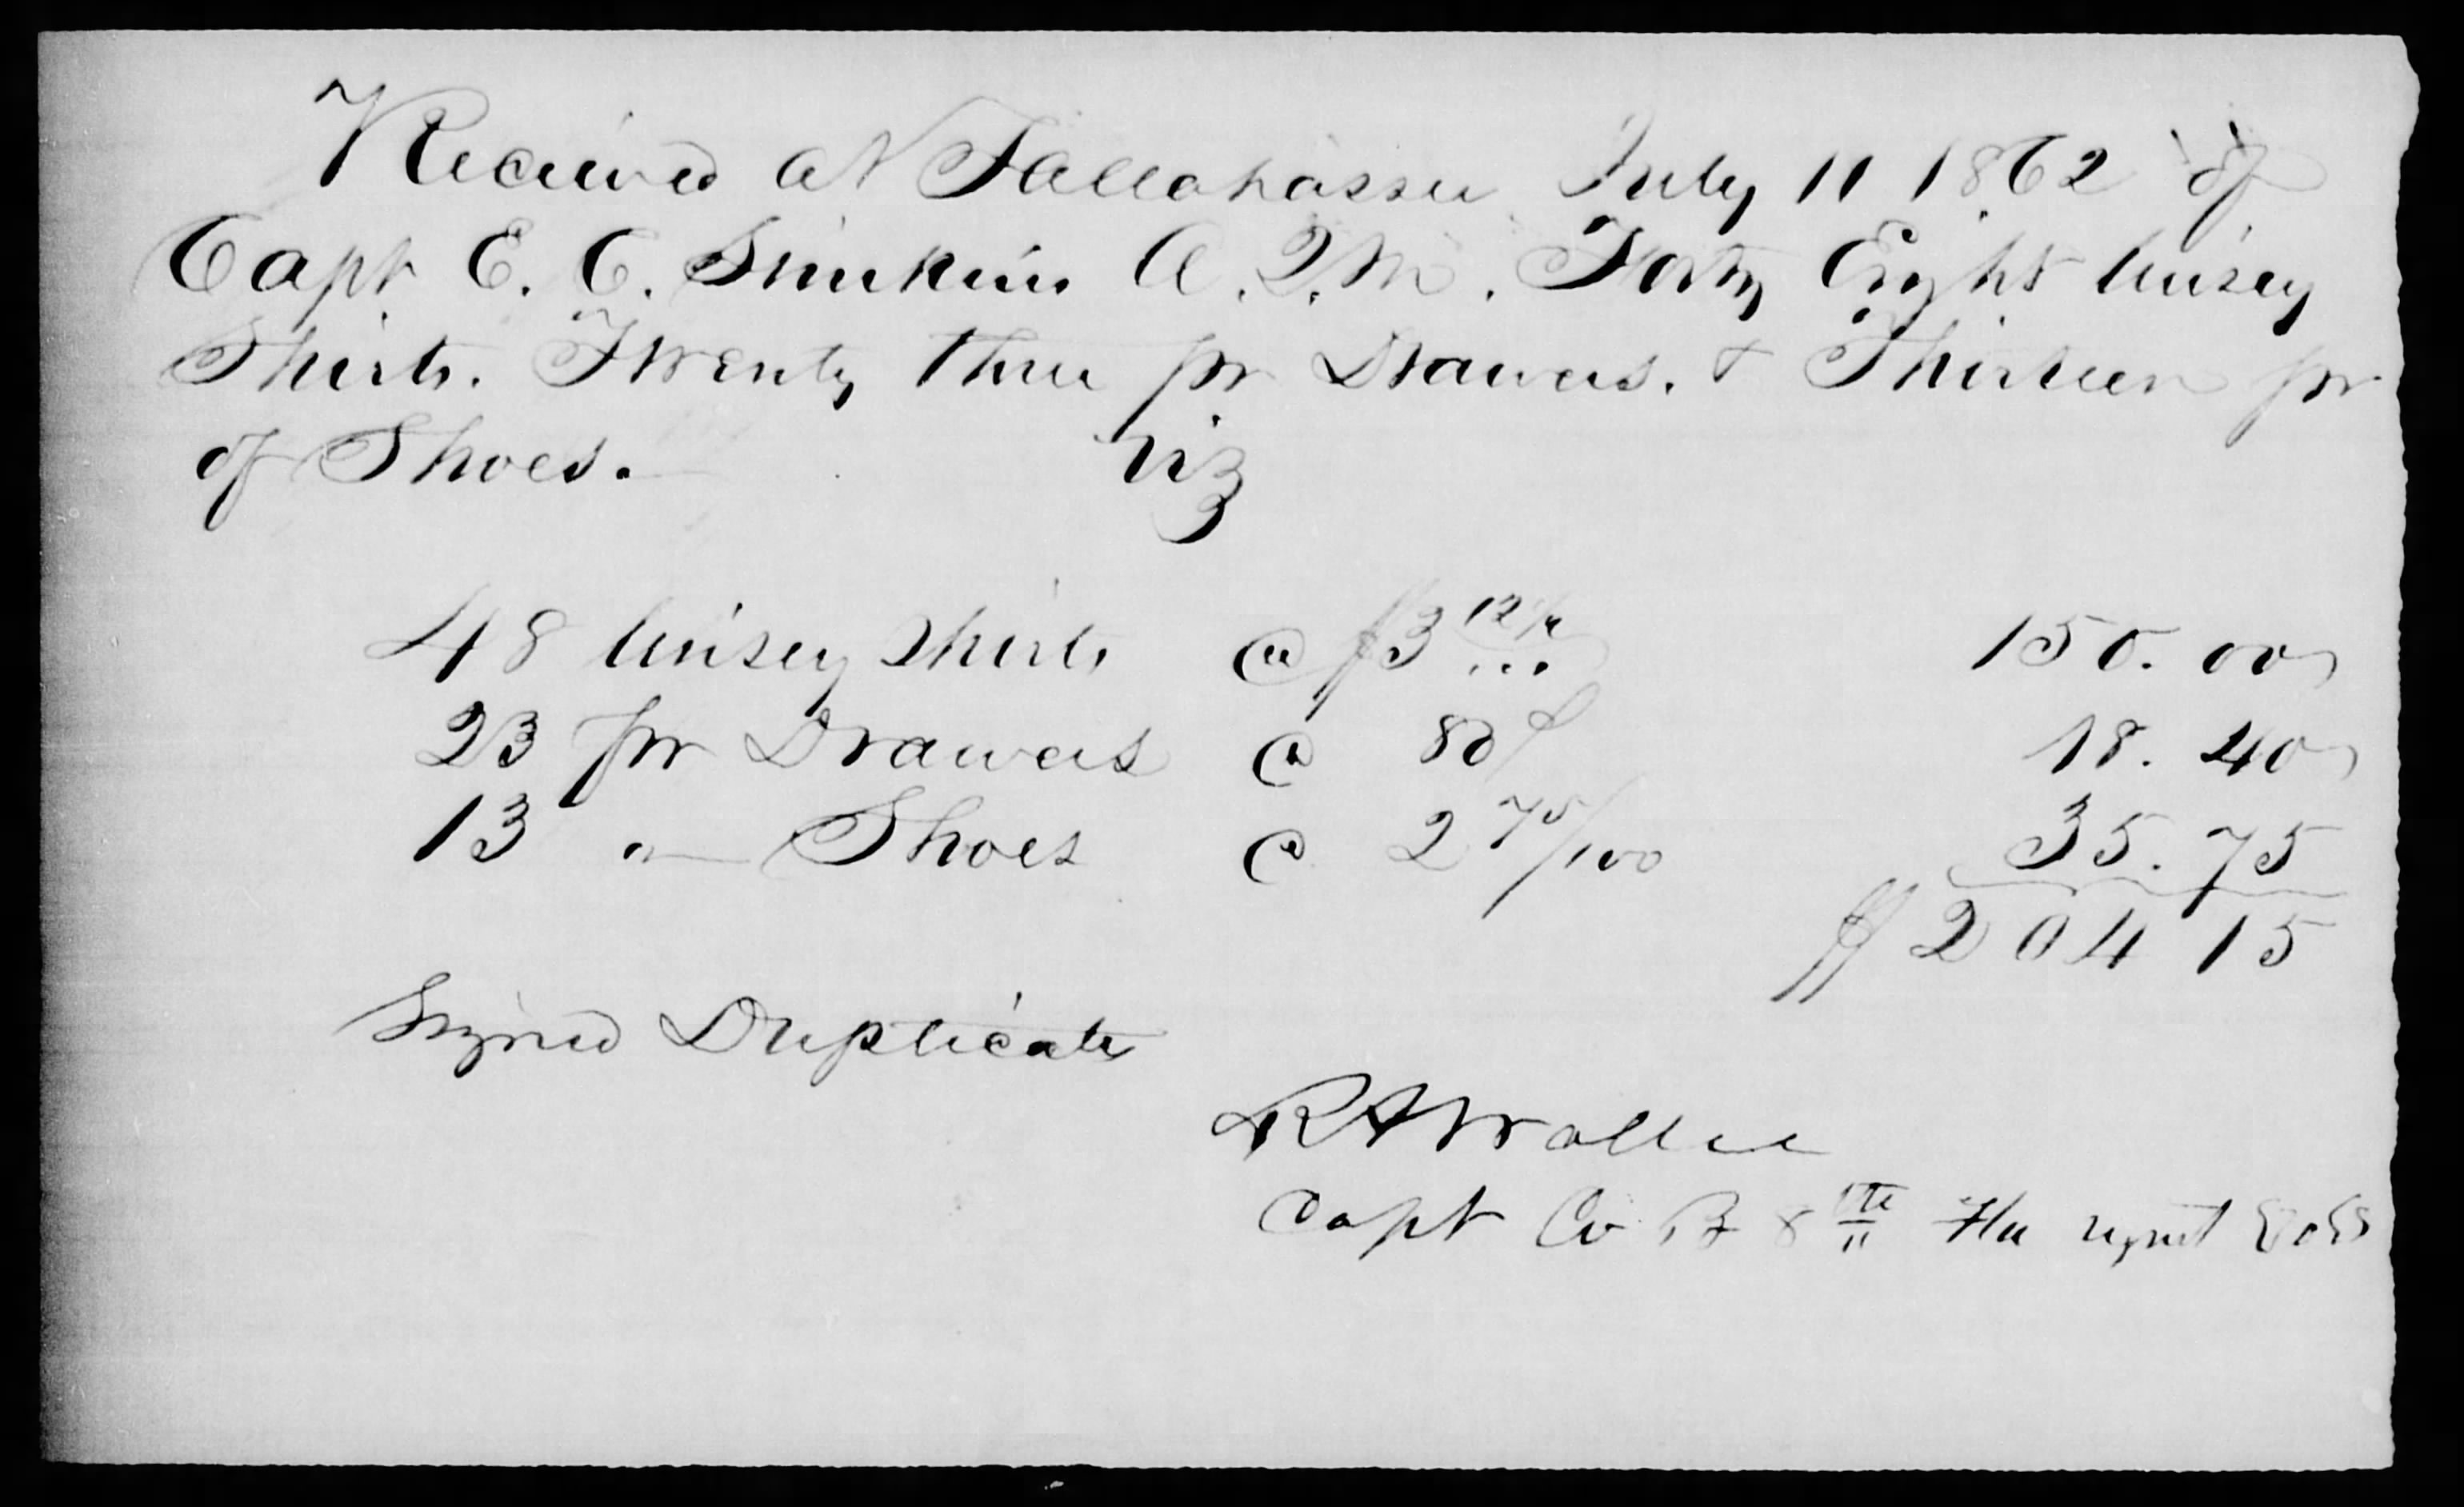 Received at Tallahassee July 11 1862 of
Capt E. C. Simkins A.Q.M. Forty Eight linsey
Shirts. Twenty three pr Drawers. & Thirteen pr
of Shoes. viz
48 linsey Shirts @ $3 12½ 150.00
23 pr Drawers @ 80¢ 18.40
13 " Shoes @ 2 75/100 35.75
$204 15
Signed Duplicates
R A Waller
Capt Co B 8th Fla regmt Vols